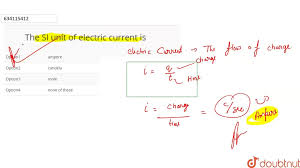 634115412
The SI unit of electric current is
Option1 ampere
Option2
Option3 mole
Option4 none of these
electric current → The flow of charge
i = q/t → charge
time
i = charge/time = c/sec
Ampere
doubtnut